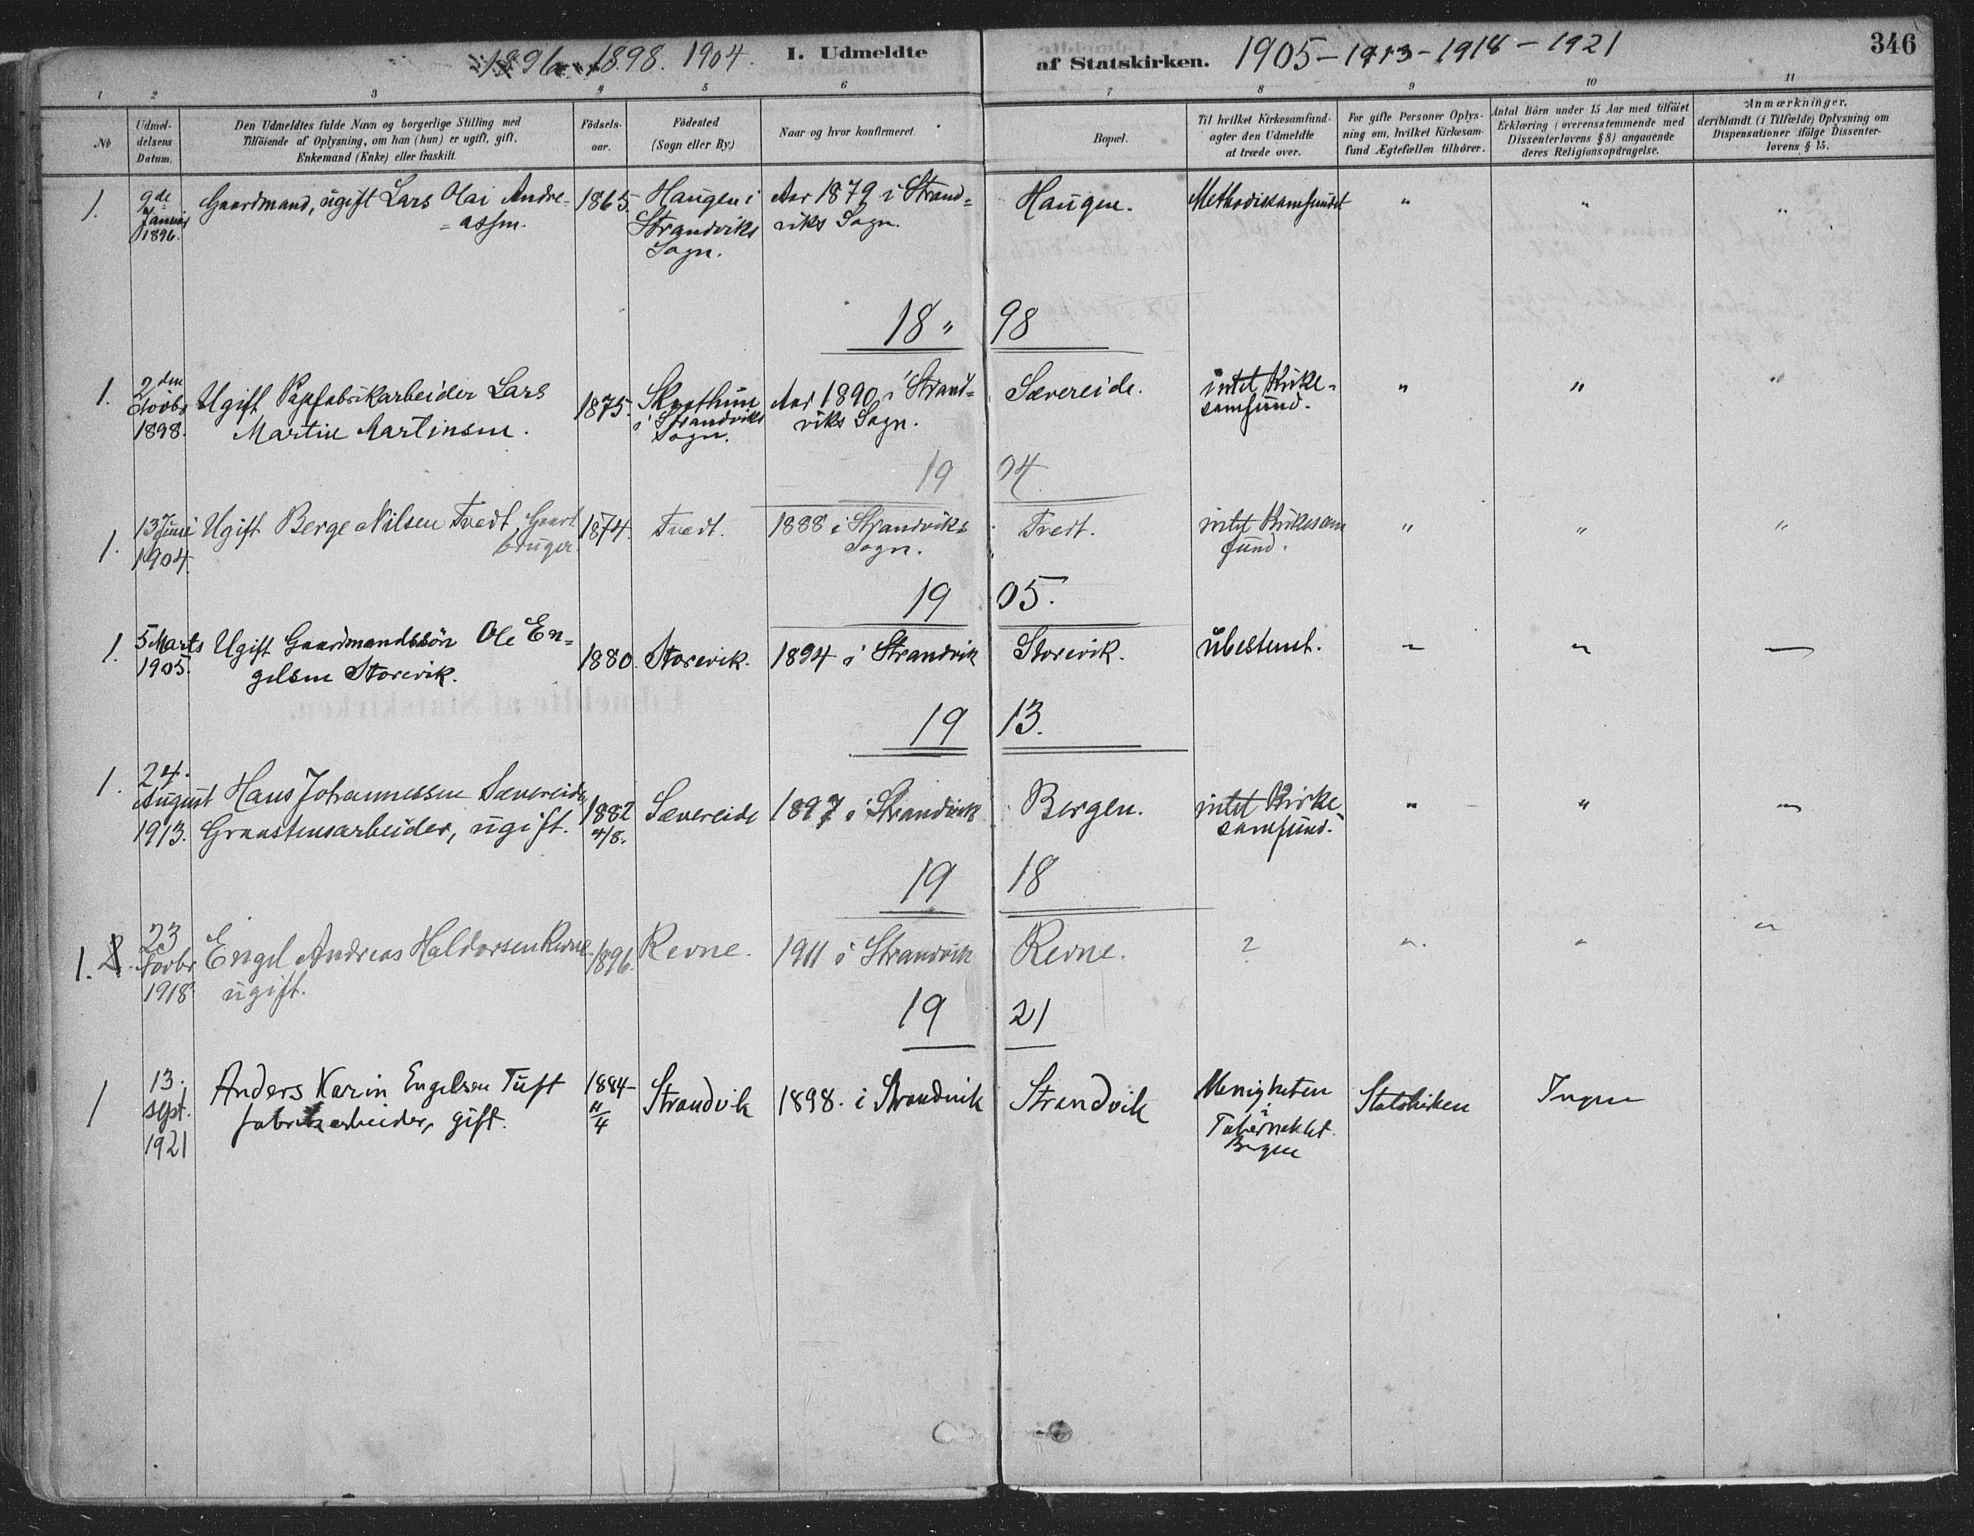 1896. 1898. 1904. I. Udmeldte af Statskirken. 1905 – 1913 – 1918 – 1921 346
1 2 3 4 5 6 7 8 9 10 11
No
Udmel-
delsens
Datum.
Den Udmeldtes fulde Navn og borgerlige Stilling med
Tilföiende af Oplysning, om han (hun) er ugift, gift,
Enkemand (Enke) eller fraskilt.
Födsels-
aar.
Födested
(Sogn eller By)
Naar og hvor konfirmeret.
Bopæl.
Til hvilket Kirkesamfund-
agter den Udmeldte
at træde over.
For gifte Personer Oplys-
ning om, hvilket Kirkesam-
fund Ægtefællen tilhörer.
Antal Börn under 15 Aar med tilföiet
Erklæring (overensstemmende med
Dissenterlovens § 8) angaaende
deres Religionsopdragelse.
Anmærkninger,
deriblandt (i Tilfælde) Oplysning om
Dispensationer ifölge Dissenter-
lovens § 15.
1.
9de
Januar
1896.
Gaardmand, ugift Lars Olai Andre=
=assen.
1865.
Haugen i
Strandviks
Sogn.
Aar 1879 i Strand=
viks Sogn.
Haugen.
Methodissamfundet
" " "
18 " 98
1.
2den
Novbr
1898.
Ugift Papfabrikarbeider Lars
Martin Martinsen.
1875.
i Strandviks
Sogn.
Aar 1890 i Strand=
viks Sogn.
Sævereide.
intet Kirke=
samfund.
" " "
19 04
1.
13 Juni
1904.
Ugift Berge Nilsen Tvedt, Gaard
bruger
1874.
Tvedt.
1888 i Strandviks
Sogn.
Tvedt.
intet Kirkesam
fund.
" " "
19 05.
1.
5 Marts
1905.
Ugift Gaardmandssön Ole En=
gelsen Storevik.
1880.
Storevik.
1894 i Strandvik
Storevik.
ubestemt.
" " —
19 13.
1.
24.
August
1913.
Hans Johannessen Sævereide
Graastensarbeider, ugift.
1882
4/8.
Sævereide
1897 i Strandvik
Bergen.
intet Kirke
samfund.
" " "
19 18
1.
23
Novbr
1918
Engel Andreas Haldorsen Revne
ugift.
1896.
Revne.
1911 i Strandvik
Revne.
?
" " "
19 21
1
13.
sept.
1921
Anders Karin Engelsen Tuft
fabrikarbeider, gift.
1884
4
Strandvik
1898. i Strandvik
Strandvik
Menigheten
i
Tabernaklet
Bergen
Statskirken
Ingen